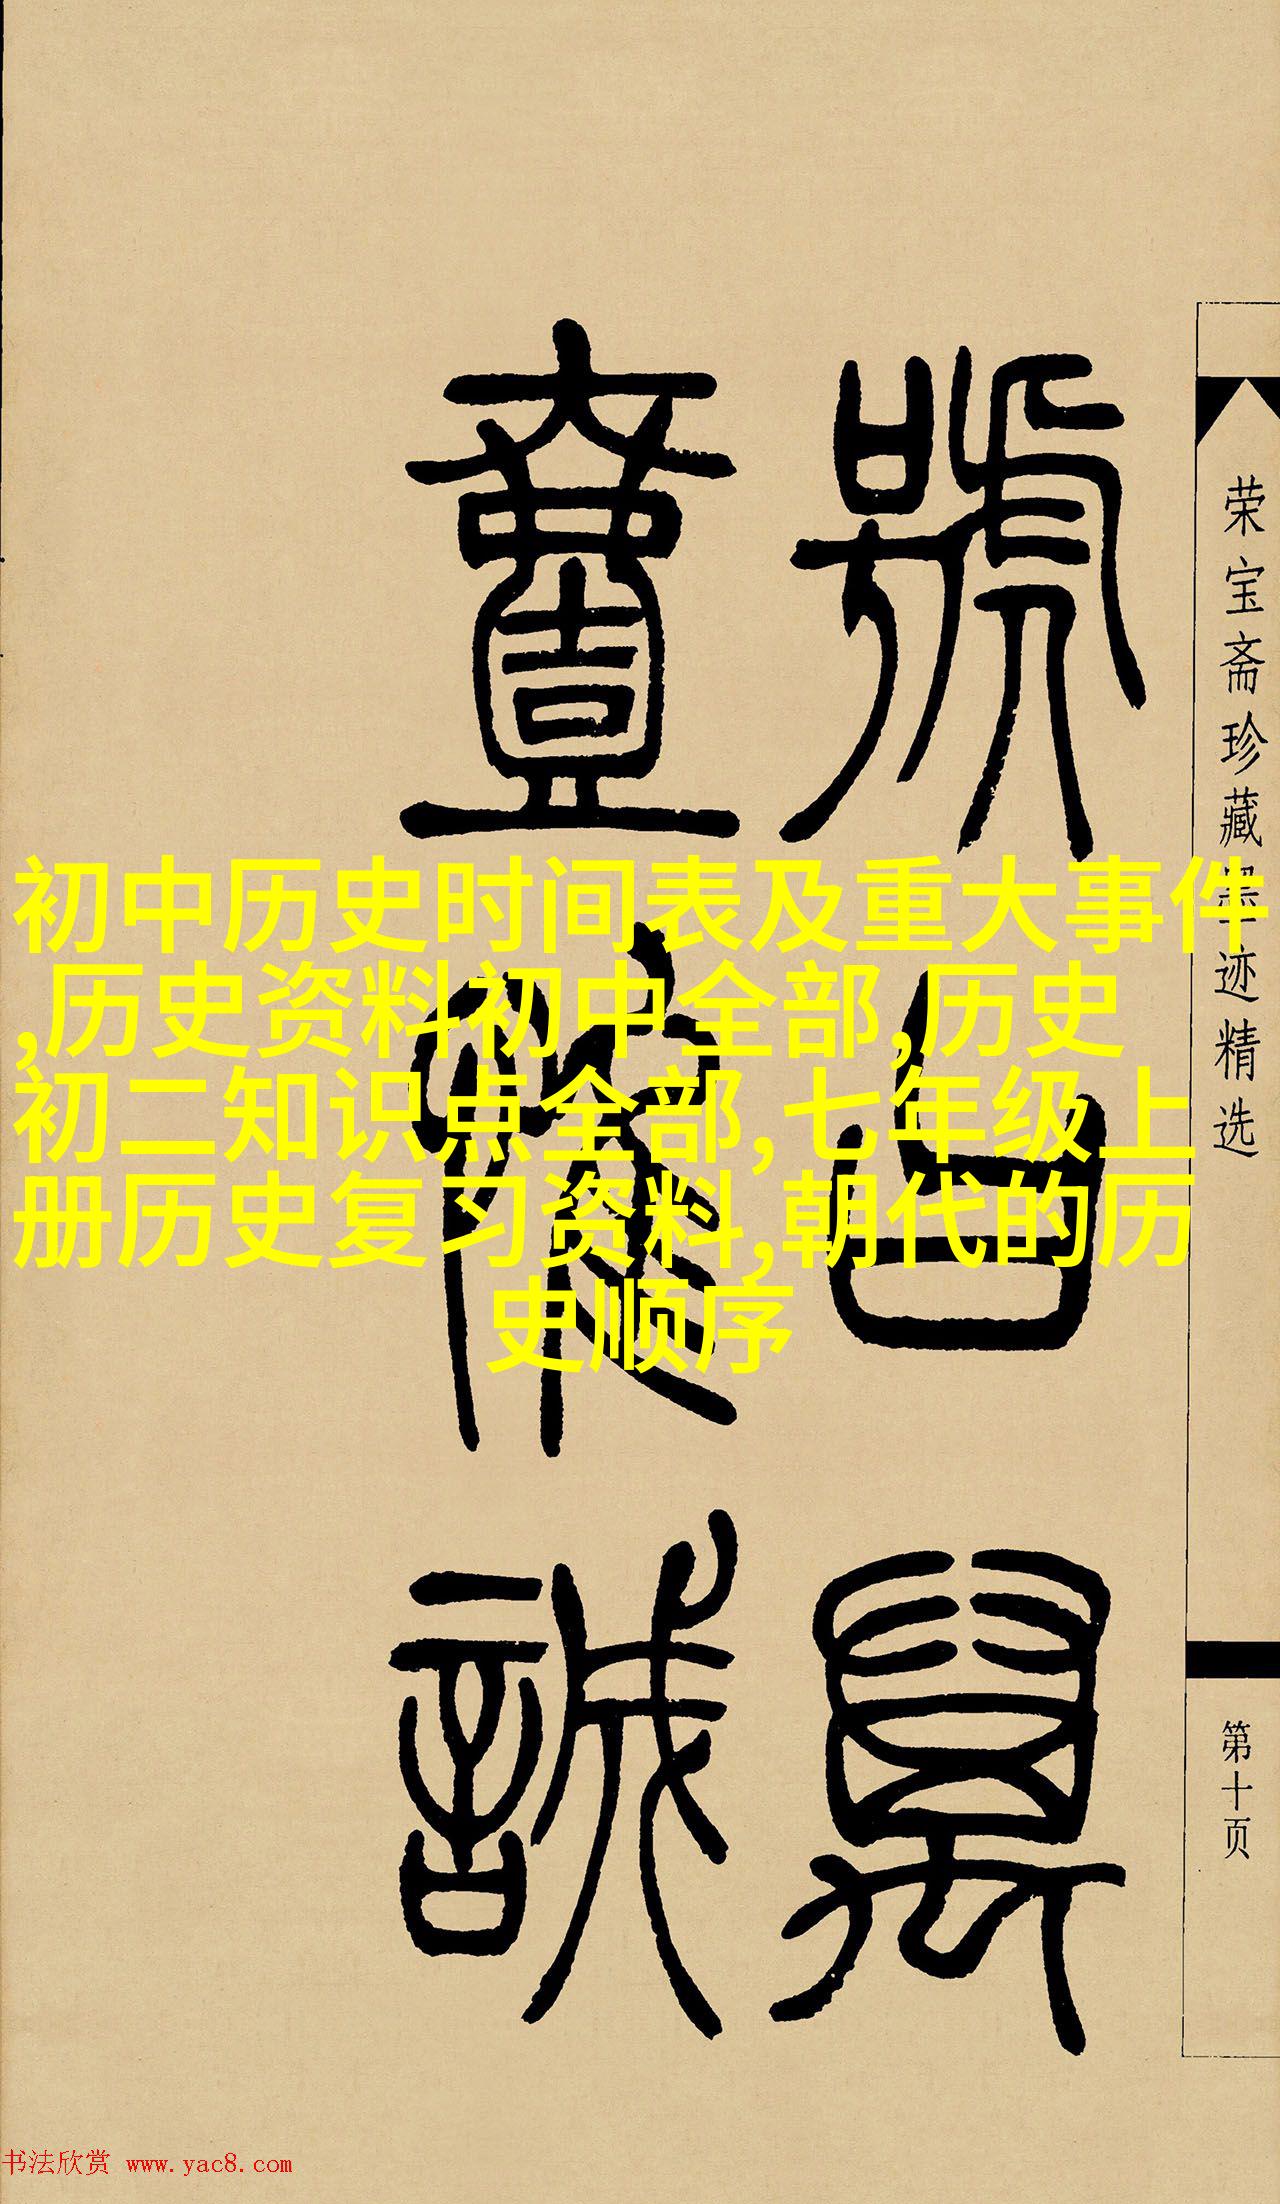 荣宝斋珍藏墨迹精选
第十页
號
初中历史时间表及重大事件
,历史资料初中全部,历史
初二知识点全部,七年级上
册历史复习资料,朝代的历
史顺序
书法欣赏 www.yac8.com